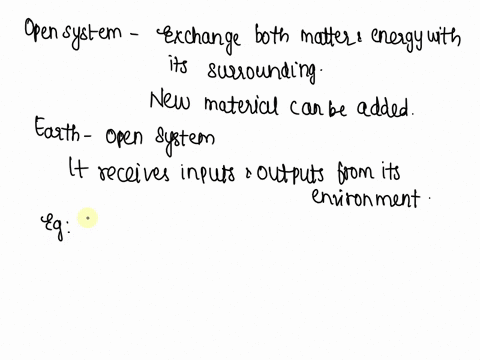 Open system - Exchange both matter & energy with
its surrounding.
New material can be added.
Earth - open system
It receives inputs & outputs from its
environment.
Eg: